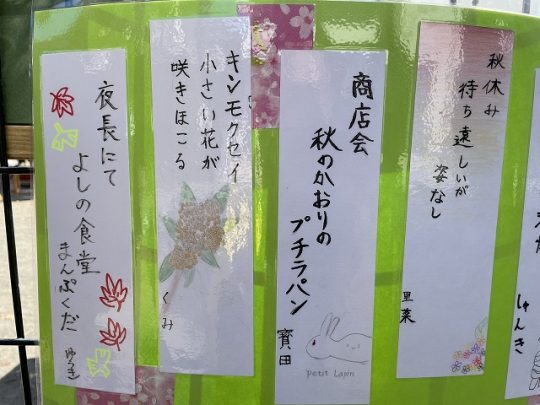 秋休み
待ち遠しいが
姿なし
里菜
商店会
秋のかおりの
プチラパン
寳田
petit Lapin
キンモクセイ
小さい花が
咲きほこる
くみ
夜長にて
よしの食堂
まんぷくだ
ゆうき
しゅんき